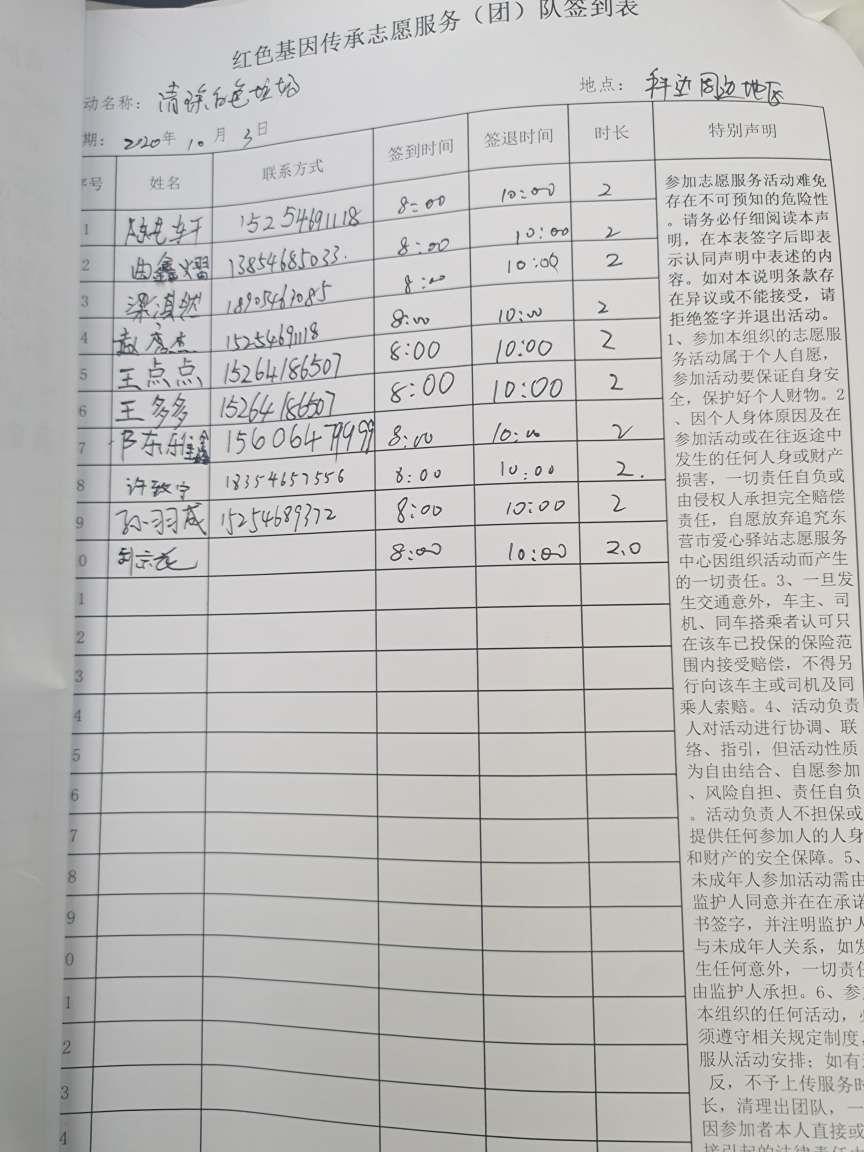 红色基因传承志愿服务（团）队签到表
动名称： 清除白色垃圾 地点： 科达周边地区
期： 2020年 10月 3日
序号 姓名 联系方式 签到时间 签退时间 时长 特别声明
1 15254691118 8:00 10:00 2
2 曲鑫熠 13854685033. 8:00 10:00 2
3 梁淇然 18905467085 8:00 10:00 2
4 赵彦杰 15254691118 8:00 10:00 2
5 王点点 15264186507 8:00 10:00 2
6 王多多 15264186507 8:00 10:00 2
7 15606479999 8:00 10:00 2
8 许致宁 18354657556 8:00 10:00 2.
9 孙羽成 15254689372 8:00 10:00 2
0 8:00 10:00 2.0
1
2
3
4
5
6
7
8
9
0
1
2
3
4
参加志愿服务活动难免
存在不可预知的危险性
。请务必仔细阅读本声
明，在本表签字后即表
示认同声明中表述的内
容。如对本说明条款存
在异议或不能接受，请
拒绝签字并退出活动。
1、参加本组织的志愿服
务活动属于个人自愿，
参加活动要保证自身安
全，保护好个人财物。2
、因个人身体原因及在
参加活动或在往返途中
发生的任何人身或财产
损害，一切责任自负或
由侵权人承担完全赔偿
责任，自愿放弃追究东
营市爱心驿站志愿服务
中心因组织活动而产生
的一切责任。3、一旦发
生交通意外，车主、司
机、同车搭乘者认可只
在该车已投保的保险范
围内接受赔偿，不得另
行向该车主或司机及同
乘人索赔。4、活动负责
人对活动进行协调、联
络、指引，但活动性质
为自由结合、自愿参加
、风险自担、责任自负
。活动负责人不担保或
提供任何参加人的人身
和财产的安全保障。5、
未成年人参加活动需由
监护人同意并在在承诺
书签字，并注明监护人
与未成年人关系，如发
生任何意外，一切责任
由监护人承担。6、参
本组织的任何活动，必
须遵守相关规定制度，
服从活动安排；如有
反，不予上传服务时
长，清理出团队，一
因参加者本人直接或
接引起的法律责任